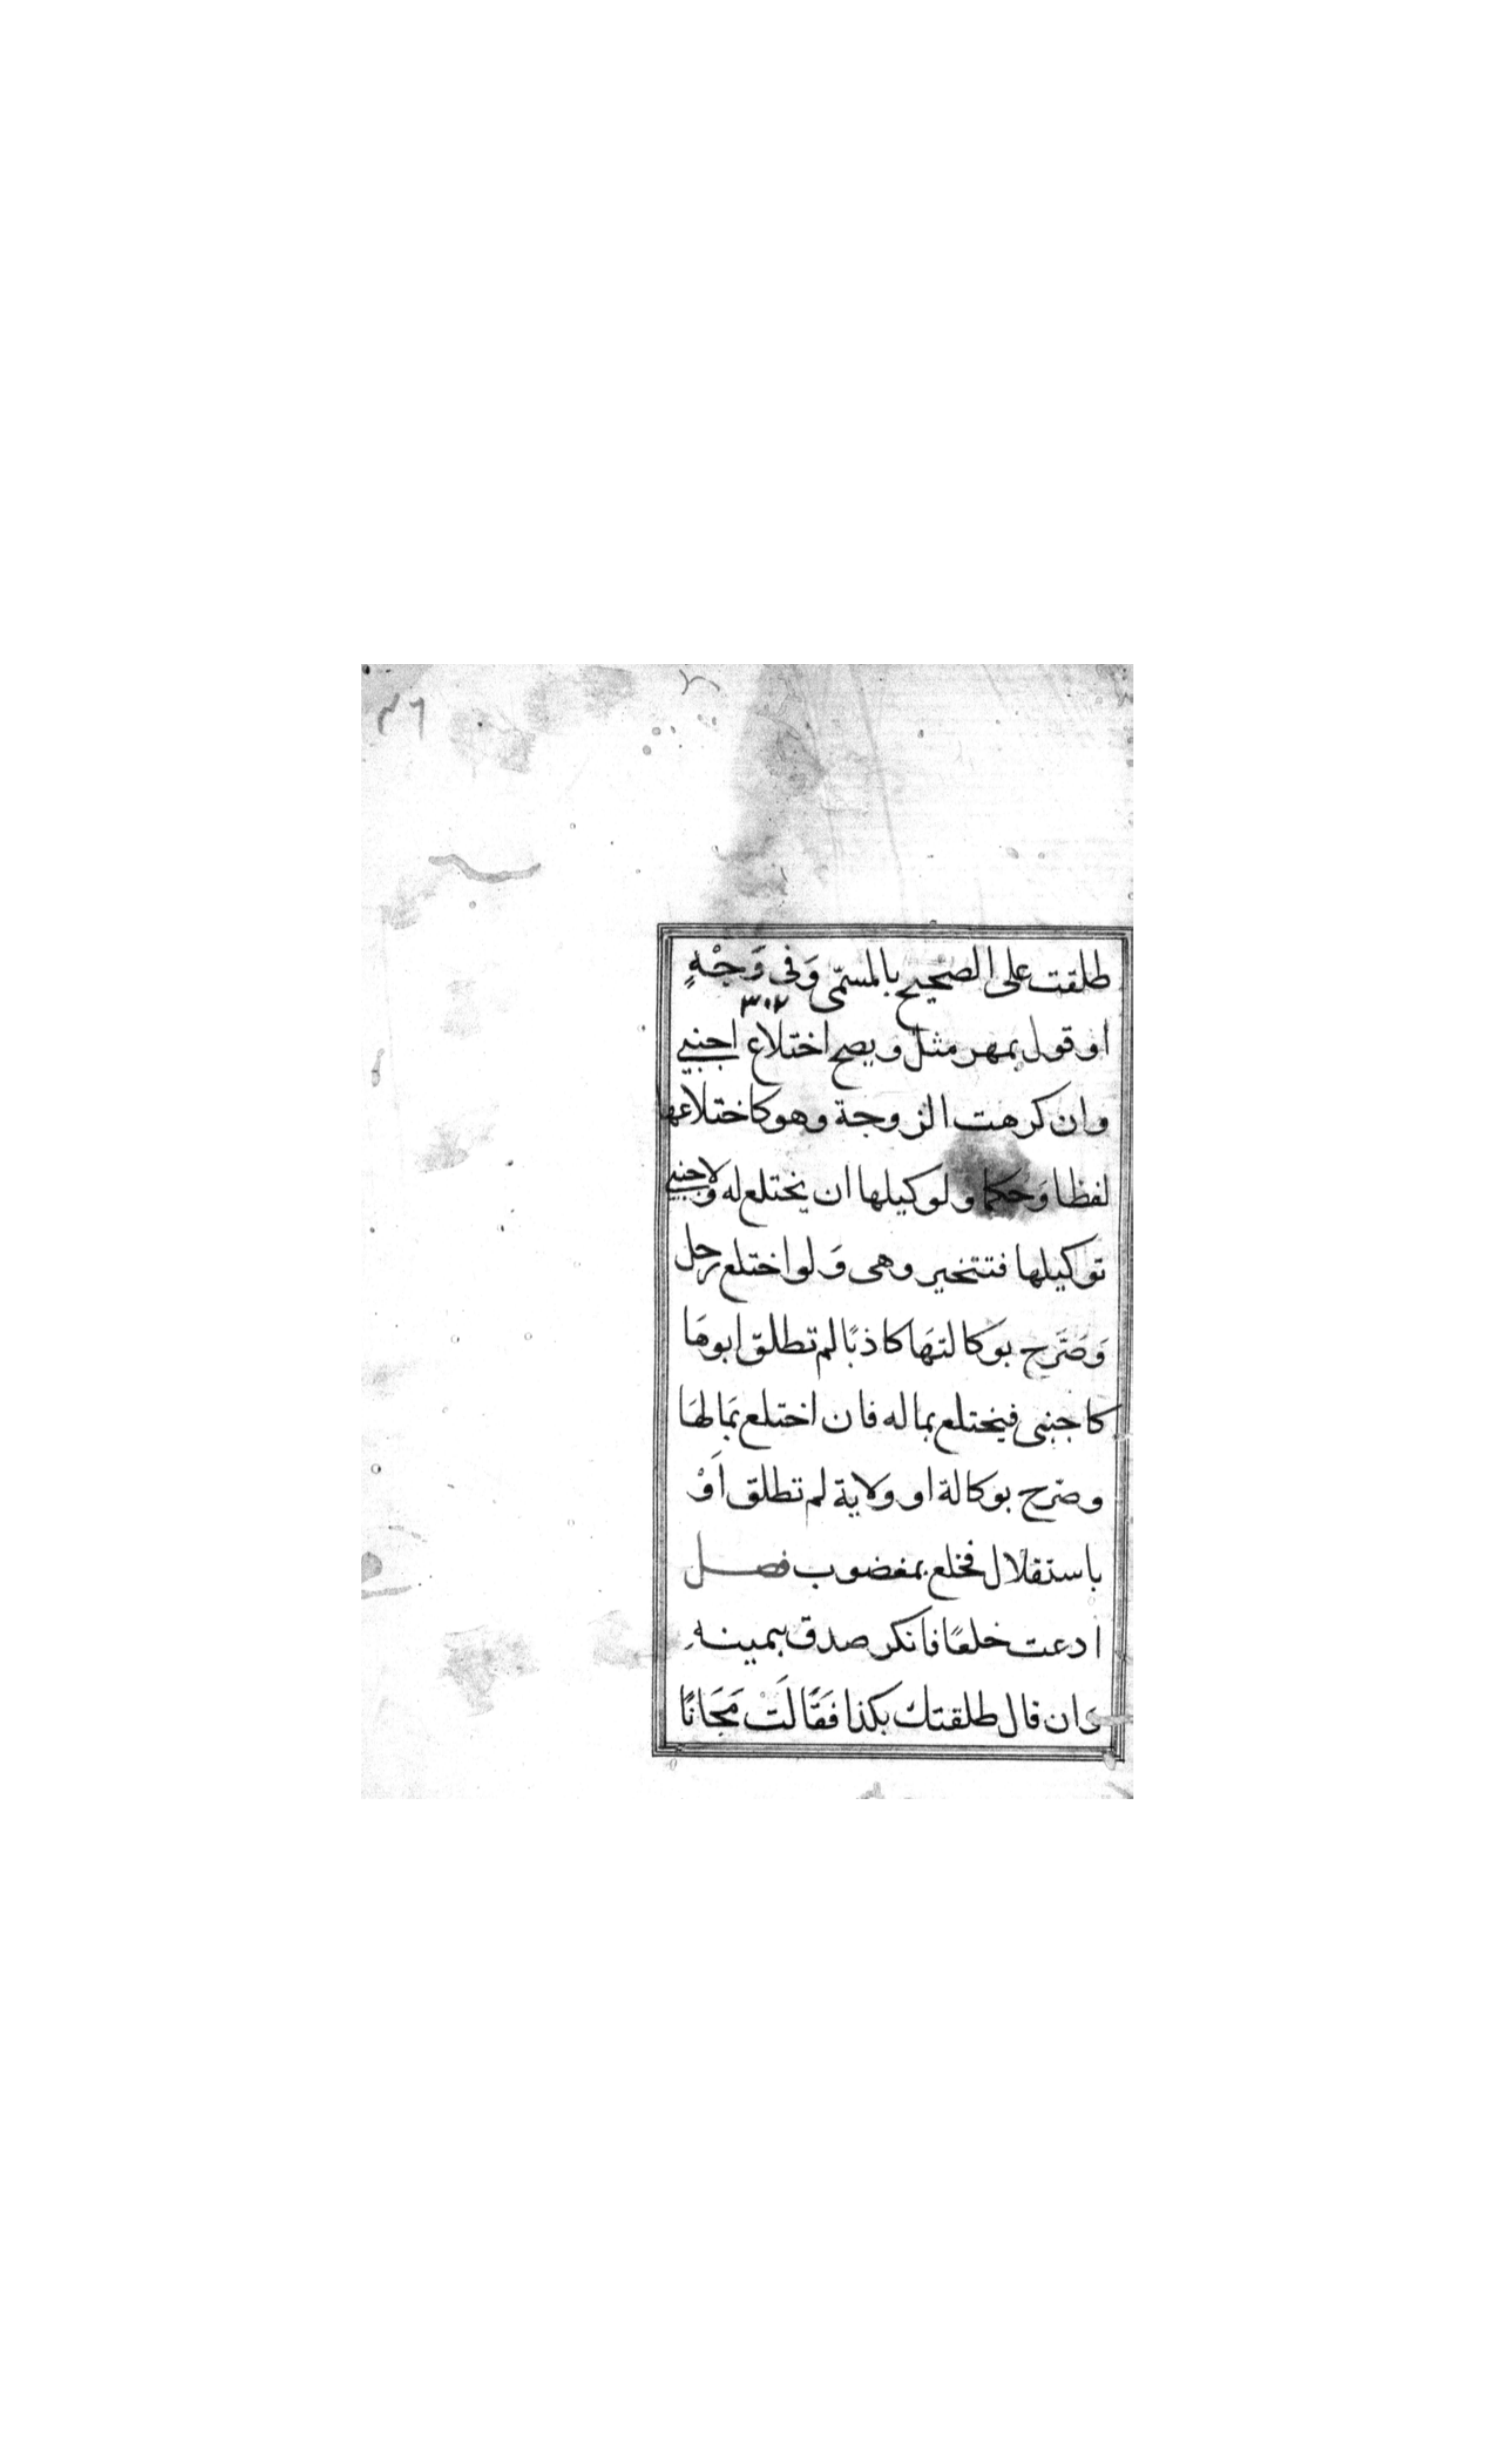 ٢٦
طلقت على الصحيح بالمسمّى وَفى وَجْهٍ
٣٠٢
او قول بمهر مثل ويصح اختلاع اجنبي
وان كرهت الزوجة وهو كاختلاعها
لفظا وَحكما ولوكيلها ان يختلع له ولاجنبي
توكيلها فتتخير وهى وَلو اختلع رجل
وَصَرَّح بوكالتهَا كاذبًا لم تطلق ابوهَا
كاجنبى فيختلع بماله فان اختلع بمَالهَا
وصرّح بوكالة او وَلاية لم تطلق اَوْ
باستقلال فخلع بمغضوب فصل
ادعت خلعًا فانكر صدق بيمينهِ
وان قال طلقتك بكذا فَقَالَتْ مَجَانًا